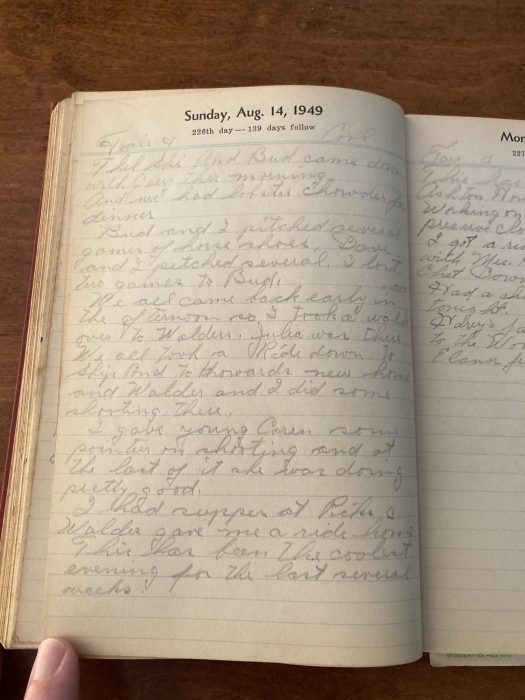 Sunday, Aug. 14, 1949
226th day — 139 days follow
Fair & Cool
And Bud came down
with Cars this morning
And we had lobster Chowder for
dinner
Bud and I pitched several
games of horse shoes. Dave
and I pitched several. I lost
two games to Bud.
We all came back early in
the afternoon so I took a walk
over to Walders. Julia was there
We all took a Ride down to
Skip And to thowards new home
and Walder and I did some
shooting there.
I gave young Caren some
pointer on shooting and at
the last of it she was doing
pretty good.
I had supper at &
Walder gave me a ride home
This has been the coolest
evening for the last several
weeks.
Mon
227
Fair &
This
Ashton
Working on
I got a
with Mrs.
Chet
Had a
tonight.
to the